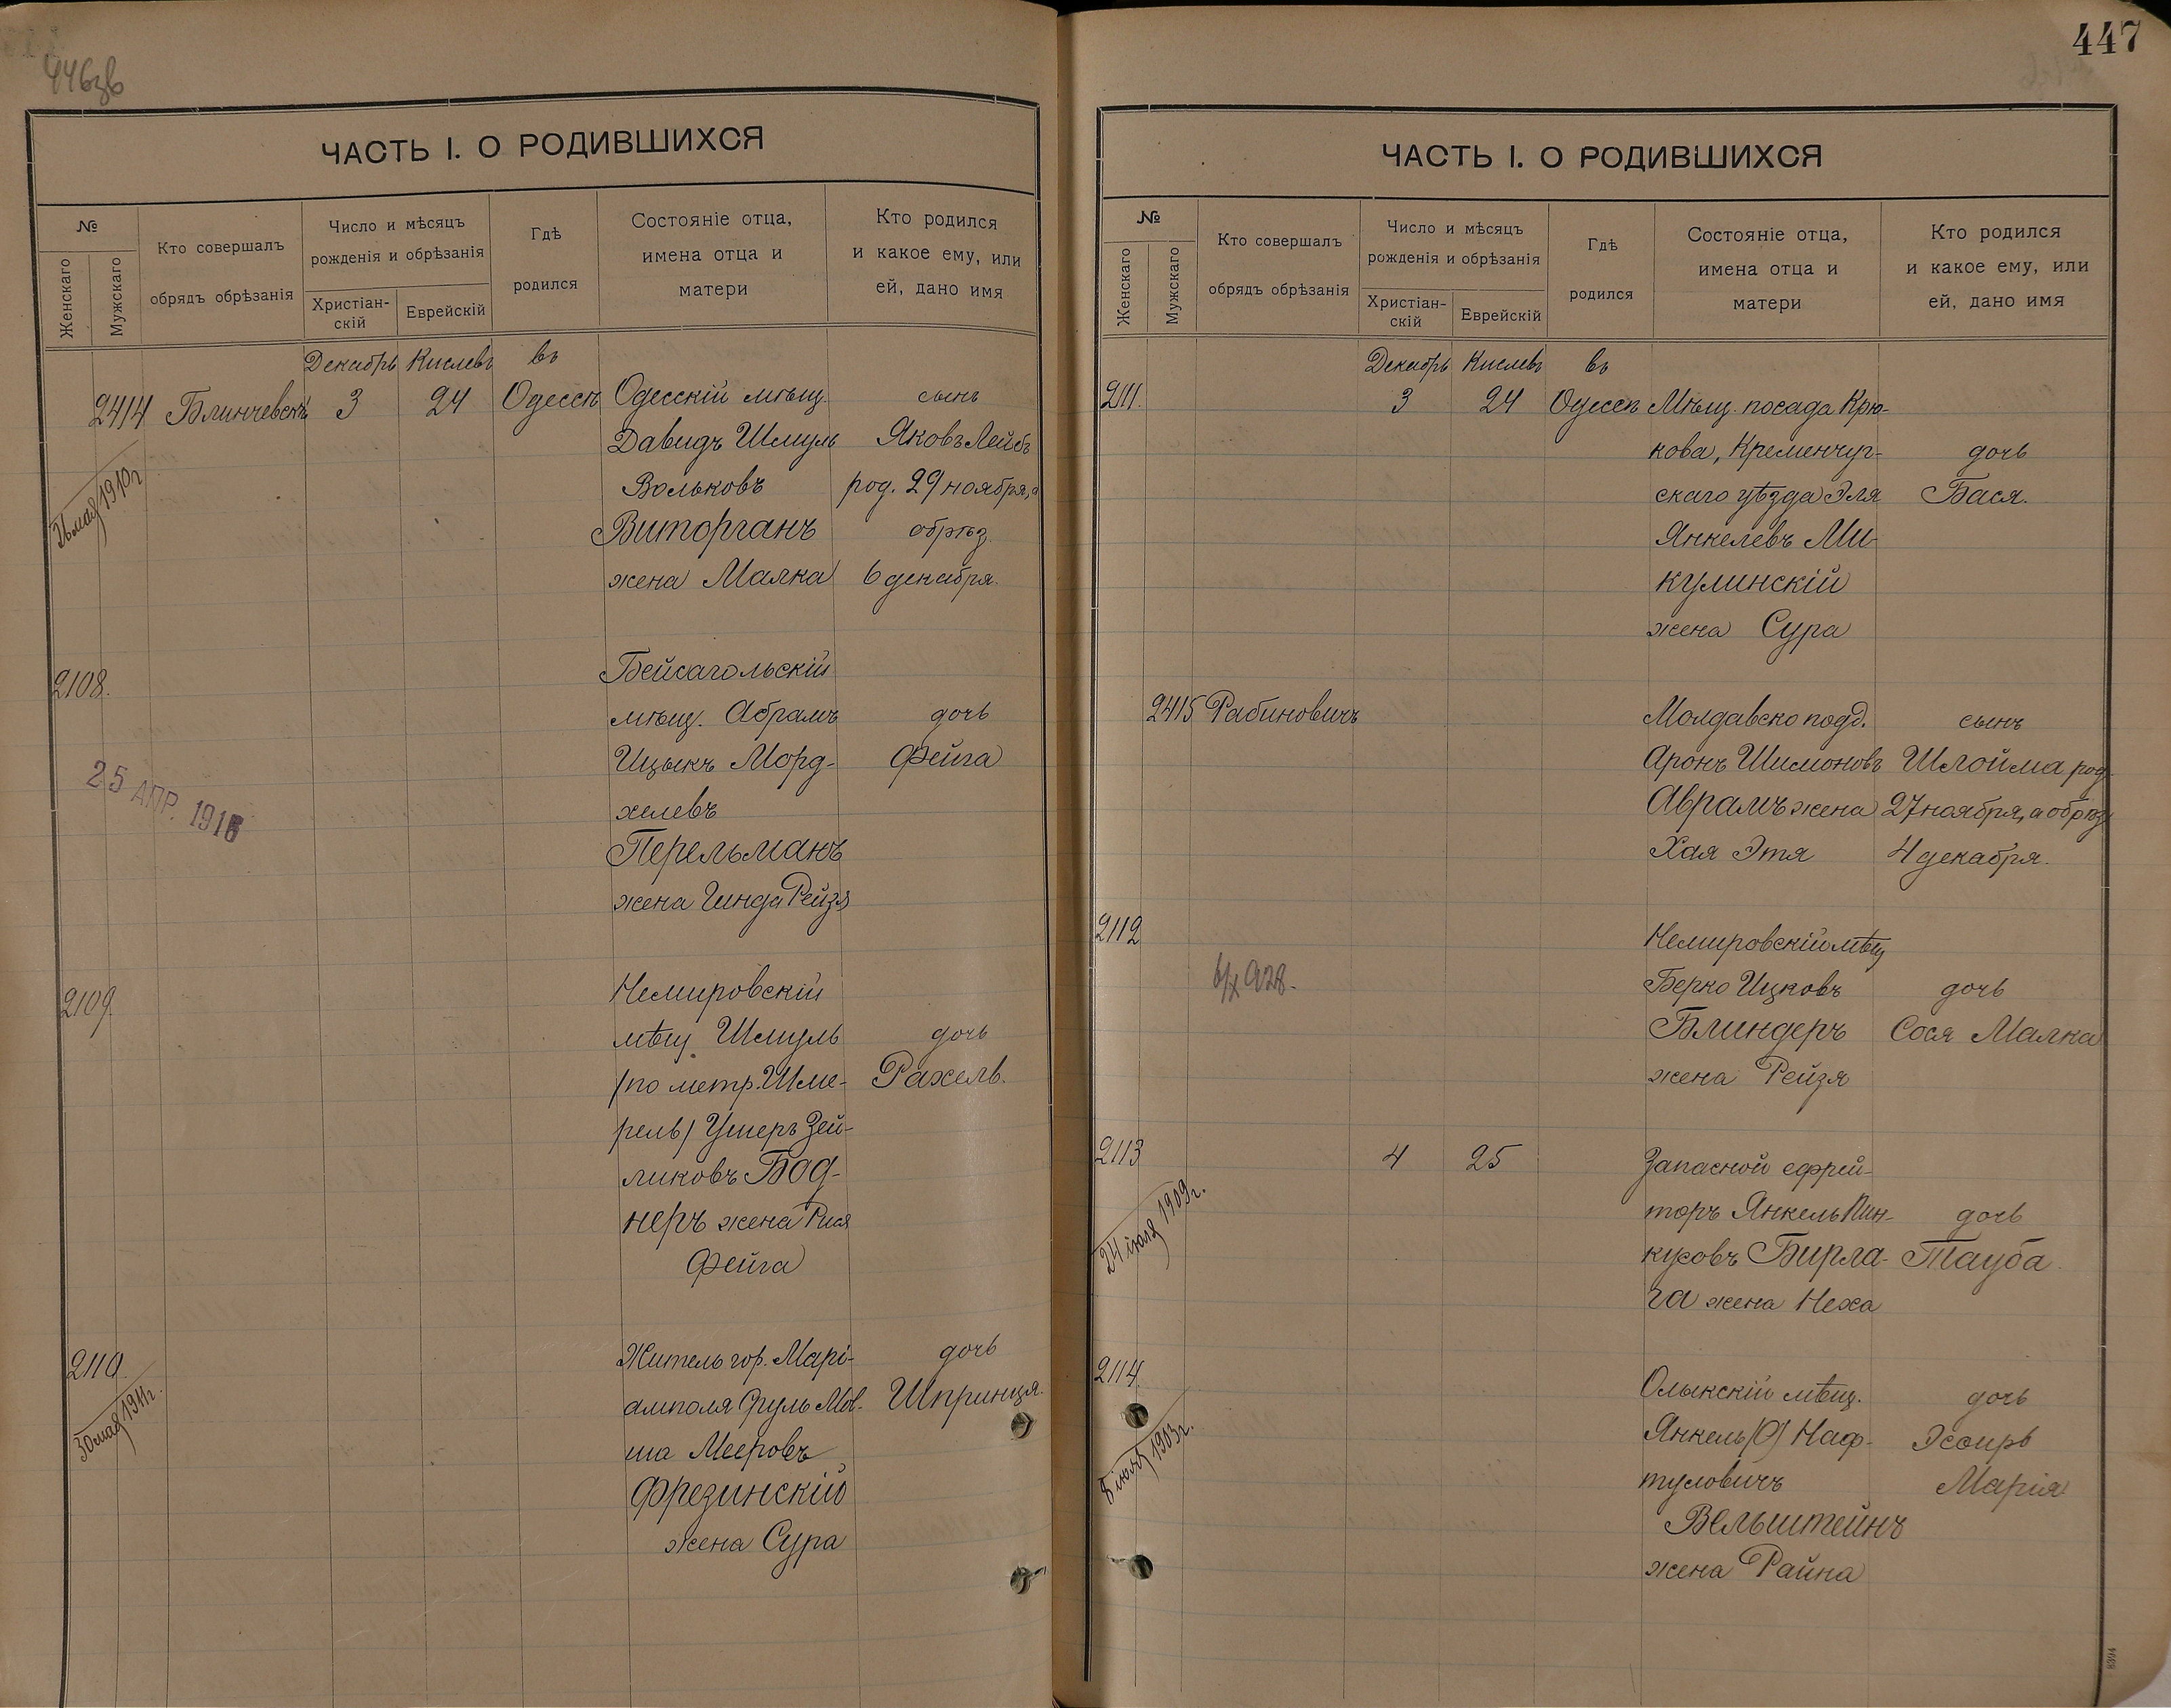 446зв
ЧАСТЬ I. О РОДИВШИХСЯ
№
Женскаго
Мужскаго
Кто совершалъ
обрядъ обрѣзанія
Число и мѣсяцъ
рожденія и обрѣзанія
Христіан-
скій
Еврейскій
Гдѣ
родился
Состояніе отца,
имена отца и
матери
Кто родился
и какое ему, или
ей, дано имя
Декабрь Кислевъ въ
2414 Блинчевскъ 3 24 Одессѣ Одесскій мѣщ. сынъ
Давидъ Шмуль Яковъ Лейбъ
Вольковъ род. 29 ноября, а
26 мая 1910 г
Виторганъ обрѣз.
жена Малка 6 декабря.
2108. Бейсагольскій
мѣщ. Абрамъ дочь
Ицыкъ Морд- Фейга
25 АПР. 1916
хелевъ
Перельманъ
жена Гинда Рейзя
2109. Немировскій
мѣщ. Шмуль дочь
/по метр. Шме- Рахель.
рель/ Ушеръ Зей-
ликовъ Бод-
неръ жена Рися
Фейга
2110. Житель гор. Марі- дочь
амполя Сруль Мов- Шпринця.
30 мая 1911 г.
ша Мееровъ
Фрезинскій
жена Сура
447
ЧАСТЬ I. О РОДИВШИХСЯ
№
Женскаго
Мужскаго
Кто совершалъ
обрядъ обрѣзанія
Число и мѣсяцъ
рожденія и обрѣзанія
Христіан-
скій
Еврейскій
Гдѣ
родился
Состояніе отца,
имена отца и
матери
Кто родился
и какое ему, или
ей, дано имя
Декабрь Кислевъ въ
2111. 3 24 Одессѣ Мѣщ. посада Крю-
кова, Кременчуг- дочь
скаго уѣзда Эля Бася.
Янкелевъ Ми-
кулинскій
жена Сура
2415 Рабиновичъ Молдавско подд. сынъ
Аронъ Шимоновъ Шлойма род.
Аврамъ жена 27 ноября, а обрѣз.
Хая Этя 4 декабря.
2112 Немировскій мѣщ
6/X 928. Берко Ицковъ дочь
Блиндеръ Сося Малка
жена Рейзя
2113 4 25 Запасной ефрей-
торъ Янкель Пин- дочь
24 іюля 1909 г.
кусовъ Бирла- Тауба.
га жена Неха
2114. Олыкскій мѣщ. дочь
Янкель /О/ Наф- Эсѳирь
8 іюля 1903 г.
туловичъ Марія
Вельштейнъ
жена Райна
8394